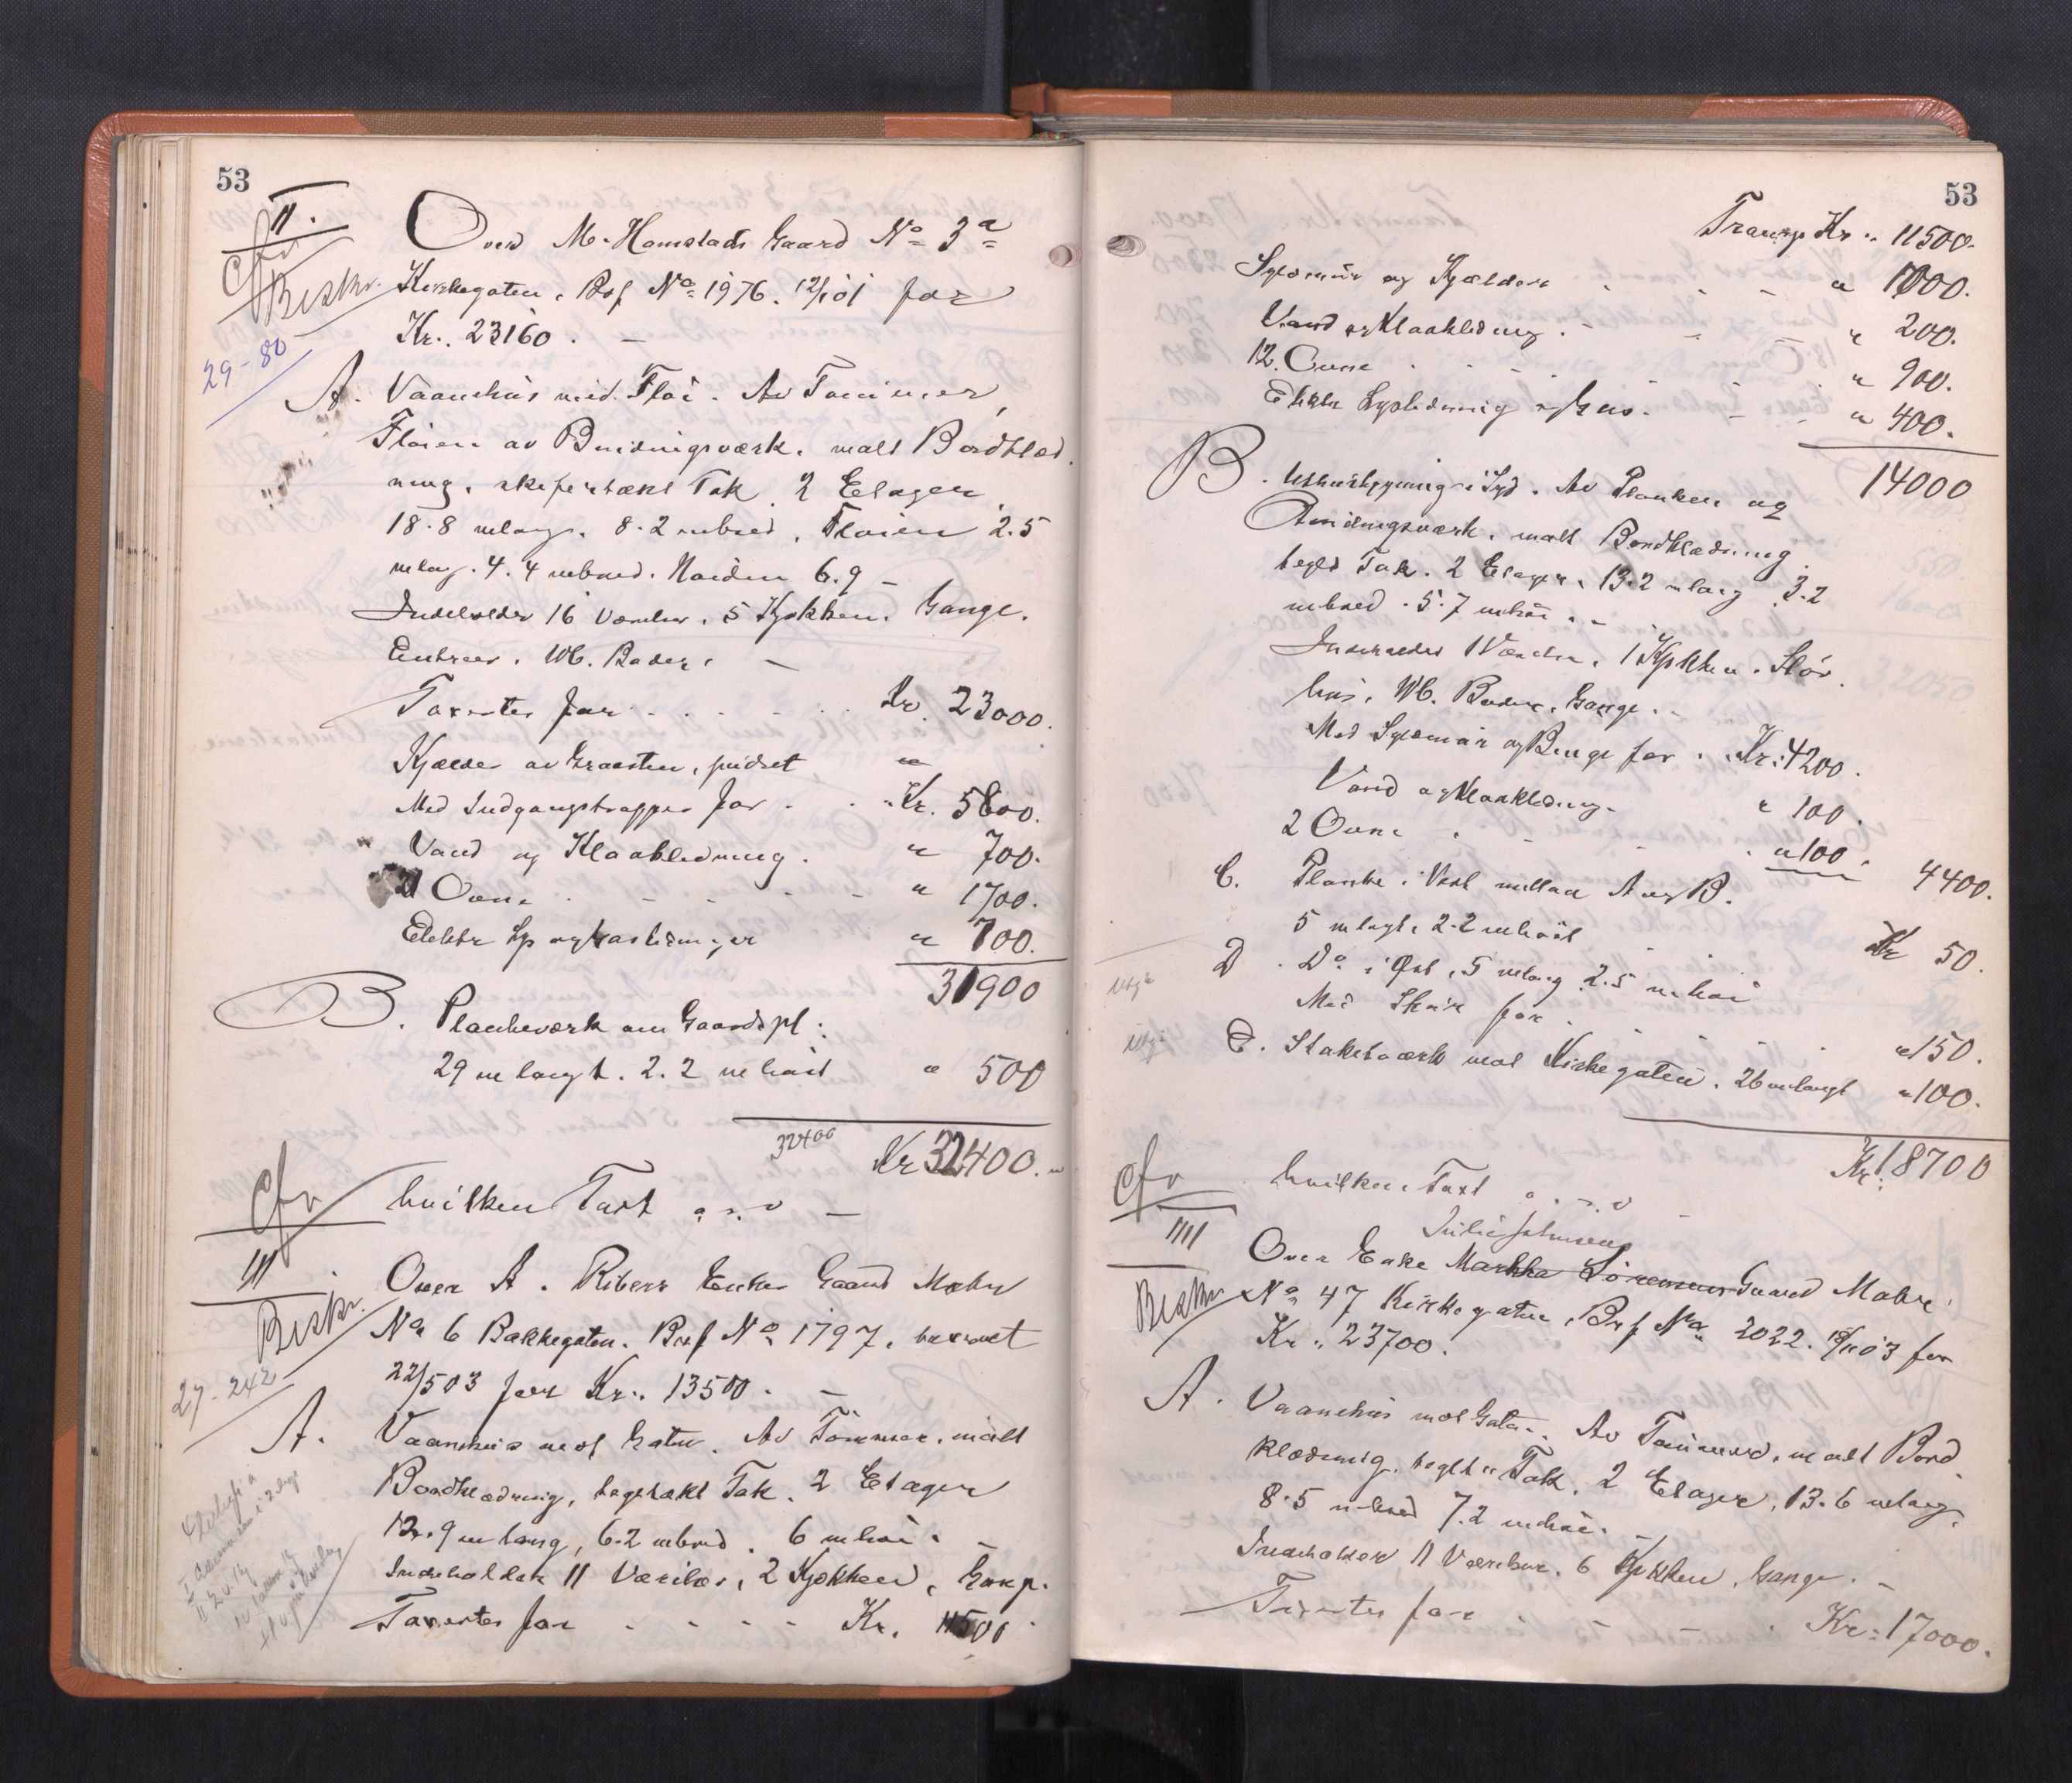 53
II.
Cfr
Beskr.
29-80
Over M. Hamstads Gaard No 3a
Kirkegaten, Prof No 1976. 12/1 01 for
Kr. 23160. —
A. Vaanehus med Fløi. Av Tømmer,
Fløien av Bindingsværk. malt Bordklæd
ning, skifertækt Tak. 2 Etager,
18.8 m lang. 8.2 m bred, Fløien 2.5
m lag. 4.4 m bred. Høiden 6.9 —
Indeholder 16 Værelser. 5 Kjøkken. Gange.
Entreer. WC. Bader. —
Taxertes for . . . . . Kr. 23000.
Kjælder av Graasten, pudset
Med Indgangstrapper for . . Kr. 5800.
Vand og Kloakledning. " 700.
21 Ovne . - - - - " 1700.
Elektr Lys og Gasledninger " 700.
31900
B. Plankeværk om Gaardspl:
29 m langt. 2.2 m høit " 500
32400
Kr 32400.
Cfr
hvilken Taxt o. s. v —
III.
Beskr.
27-242
Over A. Ribers Enkes Gaard Matr
No 6 Bakkegaten. Prof No 1797, 
22/5 03 for Kr. 13500. —
A. Vaanehus mot Gaten. Av Tømmer, malt
Bordklædning, tegltækt Tak. 2 Etager
12.9 m lang, 6.2 m bred. 6 m høi. —
Indeholder 11 Værelser, 2 Kjøkken, Gang.
Taxertes for - - - - Kr. 11500
53
Transp Kr. 11500.
Sylemur og Kjælder . . - - " 1000.
Vand og Kloakledning. - - " 200.
12 Ovne . . . . . " 900.
Elektr Lysledning og Gas. - - " 400.
14000
B. Uthusbygning i Syd. Av Planker og
Bindingsværk, malt Bordklædning
tegls Tak. 2 Etager, 13.2 m lang 3.2
m bred. 5.7 m høi. —
Indeholder 1 Værelse, 1 Kjøkken. 
hus, WC. Boder, Gange. —
Med Sylemur og Penge for . Kr. 4200.
Vand og Kloakledning - " 100.
2 Ovne . - - . " 100.
4400.
C. Planke i Vest mellem A og B.
5 m langt, 2.2 m høit . . Kr 50.
Utgå
D. Do i Øst, 5 m lang 2.5 m høi
Med for . . . " 150.
Utgå
E. Stakitværk mot Kirkegaten. 26 m langt " 100.
Kr. 18700
Cfr
hvilken Taxt o. s. v —
IIII
Beskr
Julie Johnsens
Over Enke Martha Sörensens Gaard Matr.
No 47 Kirkegaten, Prf No 2022. 03 for
Kr. 23700.
A. Vaanehus mot Gaten. Av Tømmer, malt Bord
klædning, teglt. Tak. 2 Etager, 13.6 m lang.
8.5 m bred 7.2 m høi. —
Indeholder 11 Værelser. 6 Kjøkken, Gange. —
Taxertes for . - - - Kr. 17000.